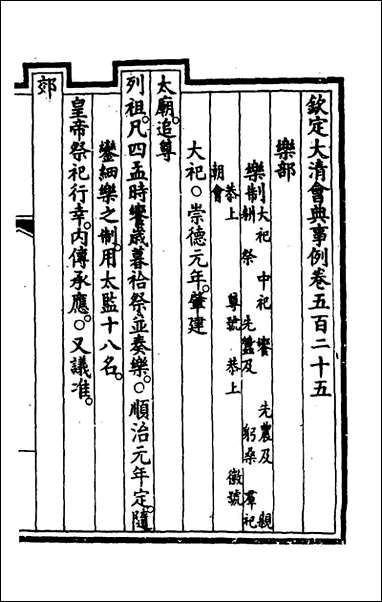 欽定大清會典事例卷五百二十五
樂部
樂制大祀 中祀 饗 先農及 親
耕 祭 先蠶及 躬桑 羣祀
恭上 尊號 恭上 徽號
朝會
大祀○崇德元年。肇建
太廟。追尊
列祖。凡四孟時饗歲暮祫祭並奏樂。○順治元年定。隨
鑾細樂之制。用太監十八名。
皇帝祭祀行幸。內傳承應。○又議准。
郊